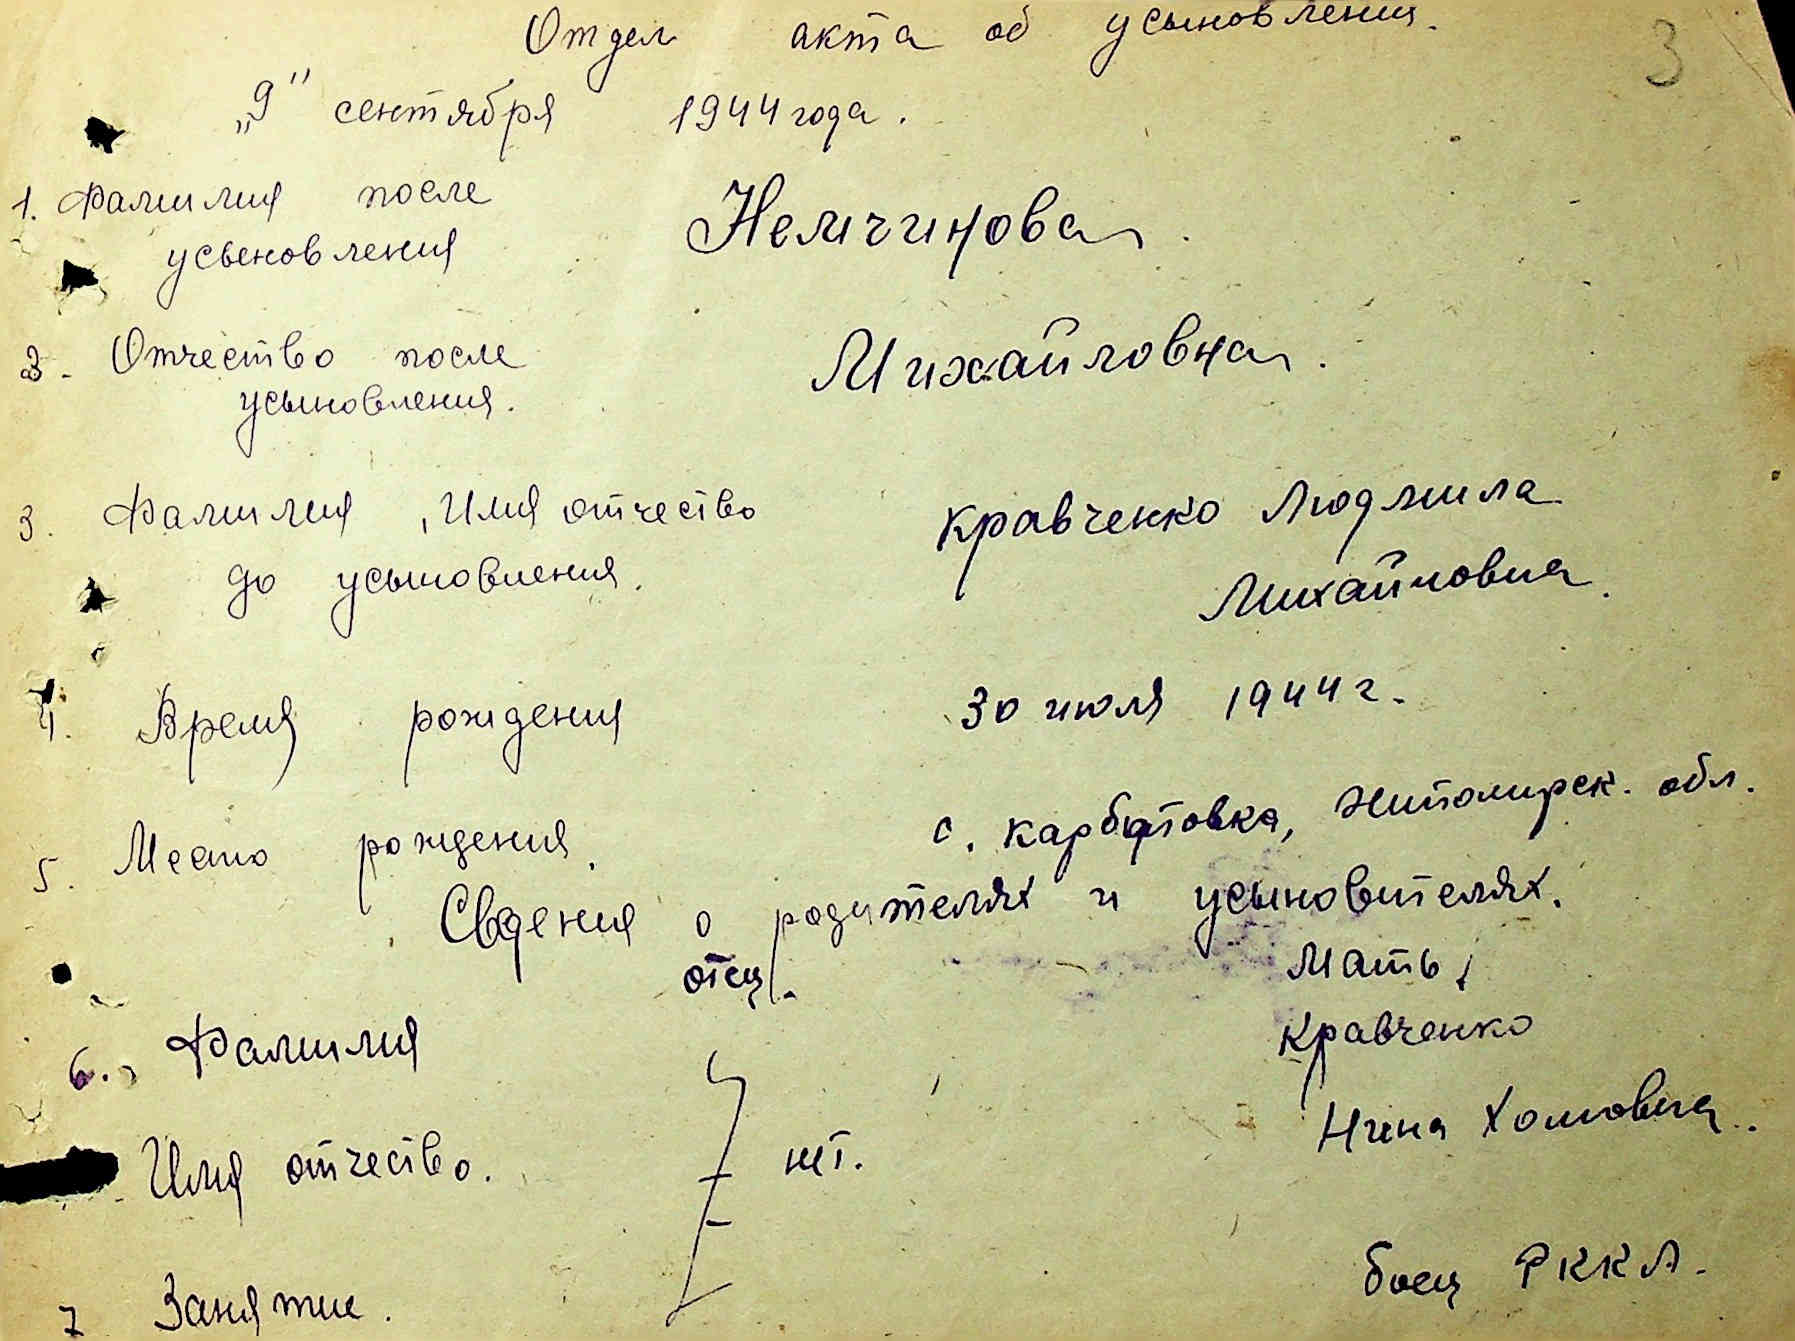 Отдел акта об усыновлении.
3
„9" сентября 1944 года.
1. Фамилия после
усыновления
Немчинова.
2. Отчество после
усыновления.
Михайловна.
3. Фамилия, Имя отчество
до усыновления.
Кравченко Людмила
Михайловна.
4. Время рождения
30 июля 1944 г.
5. Место рождения.
с. Карбатовка, Житомирск. обл.
Сведения о родителях и усыновителях.
отец.
Мать.
6. Фамилия
Кравченко
Имя отчество.
нет.
Нина Хомовна.
7 Занятие.
боец РККА.